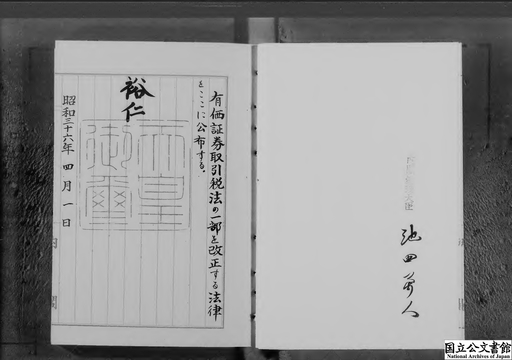 有価証券取引税法の一部を改正する法律
をここに公布する。
裕仁
天皇
御璽
昭和三十六年四月一日
池田勇人
国立公文書館
National Archives of Japan